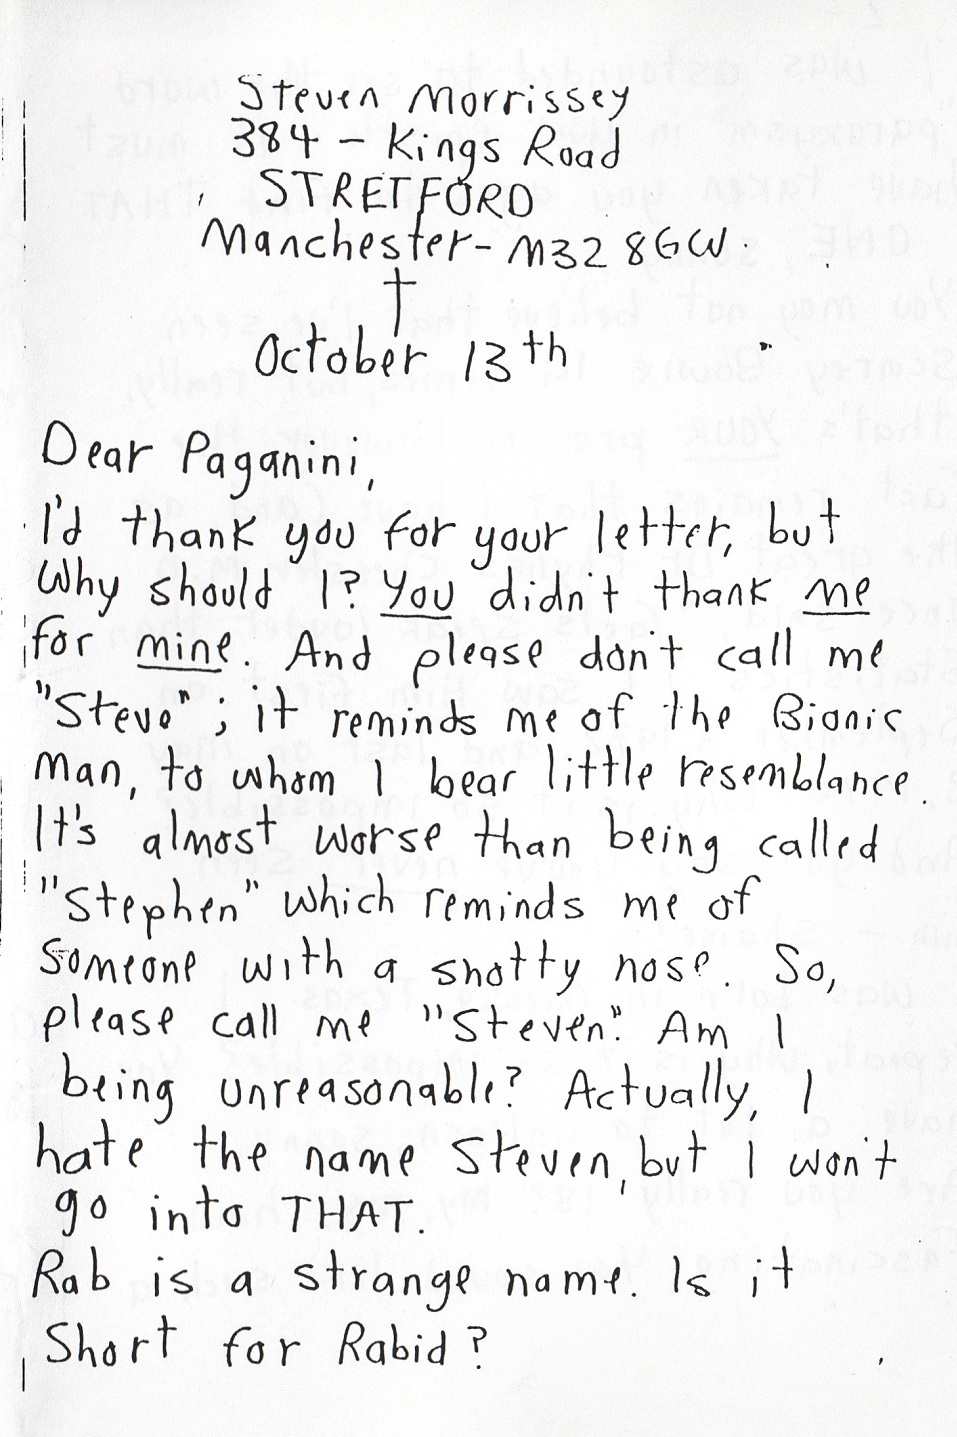 Steven Morrissey
384 - Kings Road
STRETFORD
Manchester - M32 8GW.
October 13th
Dear Paganini,
I'd thank you for your letter, but
Why should I? You didn't thank me
for mine. And please don't call me
"Steve"; it reminds me of the Bionic
Man, to whom I bear little resemblance.
It's almost worse than being called
"Stephen" which reminds me of
someone with a snotty nose. So,
please call me "Steven". Am I
being unreasonable? Actually, I
hate the name Steven, but I won't
go into THAT.
Rab is a strange name. Is it
Short for Rabid?